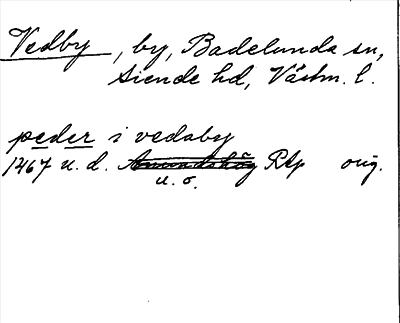 Vedby, by, Badelunda sn,
Siende hd, Västm. l.
peder i vedaby
1467 u. d. Anundshög Rap orig.
u. o.